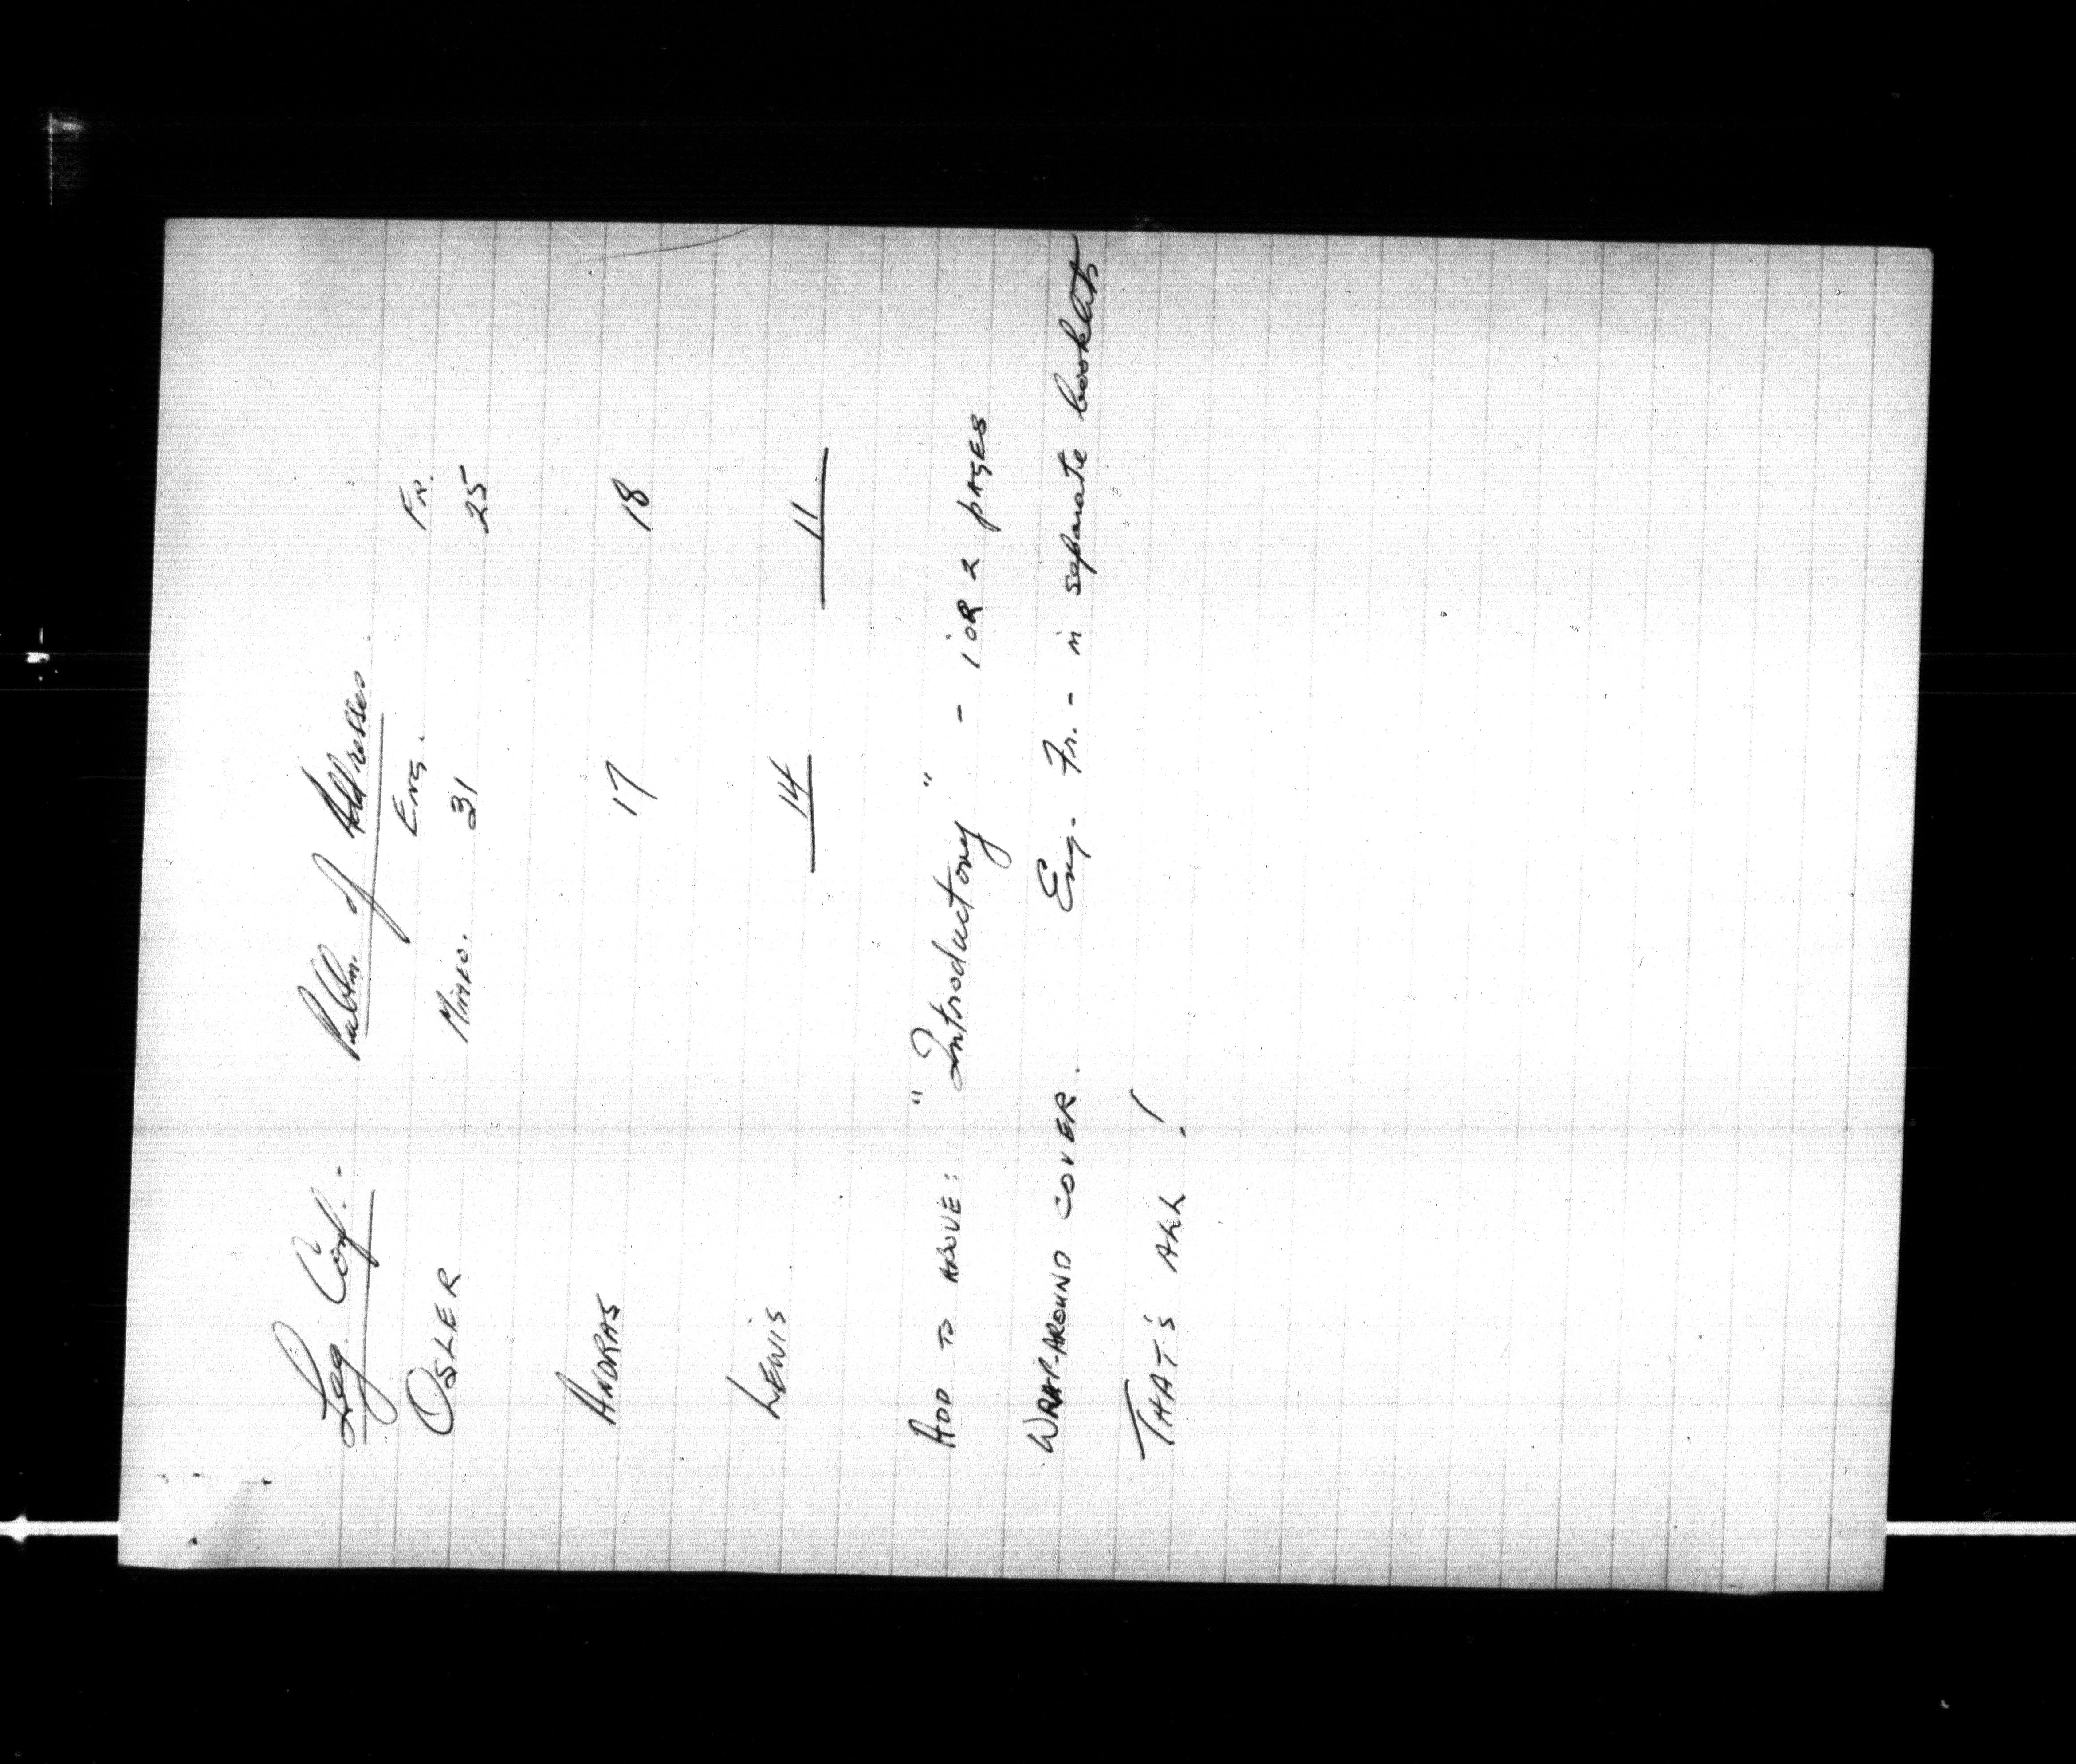 Leg. Conf. - Publn. of Addresses
Eng. Fr.
OSLER Mimeo. 31 25
ANDRAS 17 18
LEWIS 14 11
ADD TO ABOVE: "Introductory" - 1 OR 2 PAGES
WRAP-AROUND COVER. Eng. Fr. - in separate booklets
THAT'S ALL!